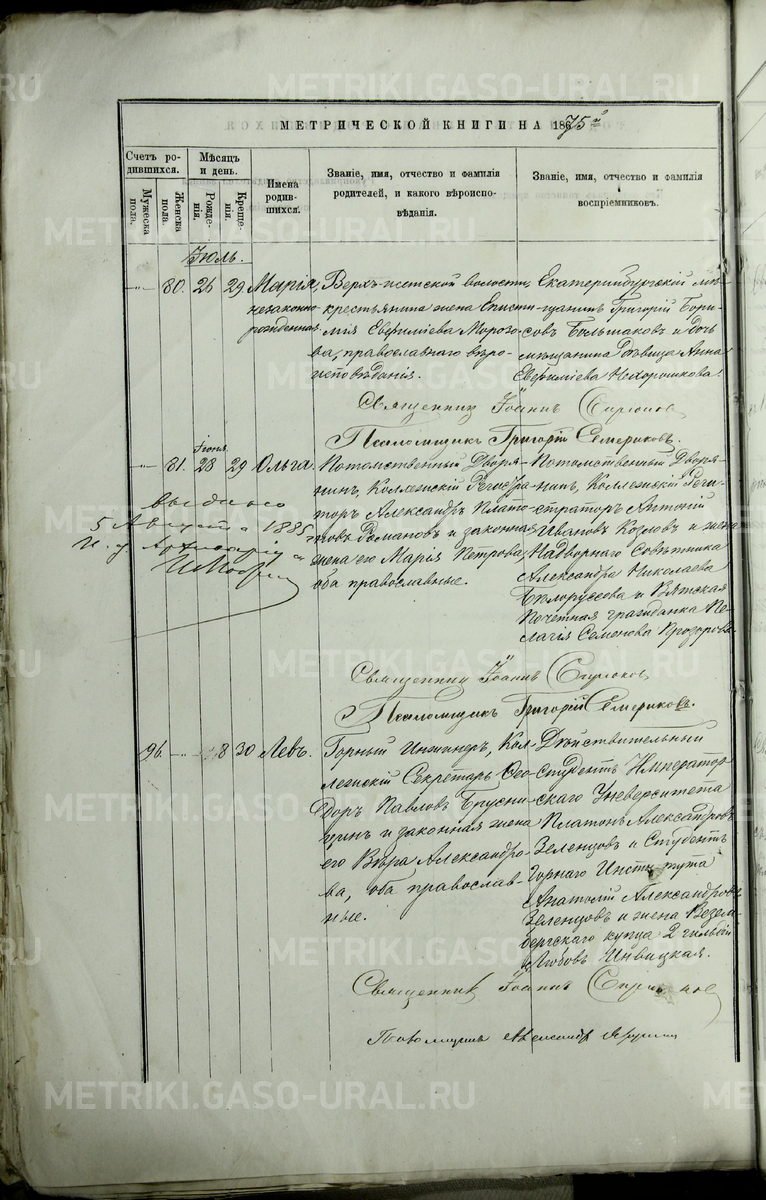 МЕТРИЧЕСКОЙ КНИГИ НА 1875
Счетъ родившихся.
Мужеска пола.
Женска пола.
Мѣсяцъ и день.
Рожденія.
Крещенія.
Имена родившихся.
Званіе, имя, отчество и фамилія
родителей, и какого вѣроиспо-
вѣданія.
Званіе, имя, отчество и фамилія
воспріемниковъ.
Іюль.
80. 26 29 Марія,
незаконно
рожденная
Верхъ-исетской волости,
крестьянина жена Еписти-
мія Евфиміева Морозо-
ва, православнаго вѣро-
исповѣданія.
Екатеринбургскій мѣ-
щанинъ Григорій Бори-
совъ Большаковъ и дочь
мѣщанина дѣвица Анна
Евфиміева Нехорошкова.
Священникъ Іоаннъ
Псаломщикъ Григорій Семериковъ.
Іюня
81. 28 29 Ольга.
Потомственный Дворя-
нинъ, Коллежскій Регистра-
торъ Александръ Плато-
новъ Романовъ и законная
жена его Марія Петрова,
оба православные.
Потомственный Дворя-
нинъ, Коллежскій Реги-
страторъ Антоній
Ивановъ Козловъ и жена
Надворнаго Совѣтника
Александра Николаева
Бѣлоруссова и Вятская
почетная гражданка Пе-
лагія Семенова Прозорова.
выдано
5 Августа 1885
Священникъ Іоаннъ
Псаломщикъ Григорій Семериковъ.
96. 8 30 Левъ.
Горный Инженеръ, Кол-
лежскій Секретарь Ѳео-
доръ Павловъ Брусни-
цинъ и законная жена
его Вѣра Александро-
ва, оба православ-
ные.
Дѣйствительный
студентъ Император-
скаго Университета
Платонъ Александровъ
Зеленцовъ и Студентъ
Горнаго Института
Анатолій Александровъ
Зеленцовъ и жена Везем-
бергскаго купца 2 гильдіи
Любовь Ивицкая.
Священникъ Іоаннъ
Псаломщикъ Александръ
METRIKI.GASO-URAL.RU